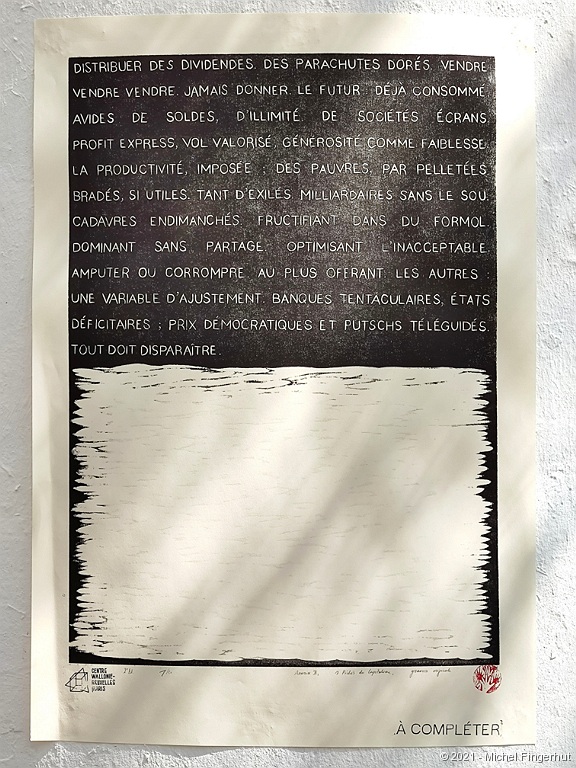 DISTRIBUER DES DIVIDENDES. DES PARACHUTES DORÉS. VENDRE
VENDRE VENDRE. JAMAIS DONNER. LE FUTUR : DÉJÀ CONSOMMÉ.
AVIDES DE SOLDES, D'ILLIMITÉ. DE SOCIÉTÉS ÉCRANS.
PROFIT EXPRESS, VOL VALORISÉ, GÉNÉROSITÉ COMME FAIBLESSE.
LA PRODUCTIVITÉ, IMPOSÉE ; DES PAUVRES, PAR PELLETÉES,
BRADÉS, SI UTILES. TANT D'EXILÉS. MILLIARDAIRES SANS LE SOU.
CADAVRES ENDIMANCHÉS FRUCTIFIANT DANS DU FORMOL.
DOMINANT SANS PARTAGE. OPTIMISANT L'INACCEPTABLE.
AMPUTER OU CORROMPRE. AU PLUS OFFRANT. LES AUTRES :
UNE VARIABLE D'AJUSTEMENT. BANQUES TENTACULAIRES, ÉTATS
DÉFICITAIRES ; PRIX DÉMOCRATIQUES ET PUTSCHS TÉLÉGUIDÉS.
TOUT DOIT DISPARAÎTRE.
CENTRE
WALLONIE-
BRUXELLES
PARIS
À COMPLÉTER
© 2021 - Michel Fingerhut